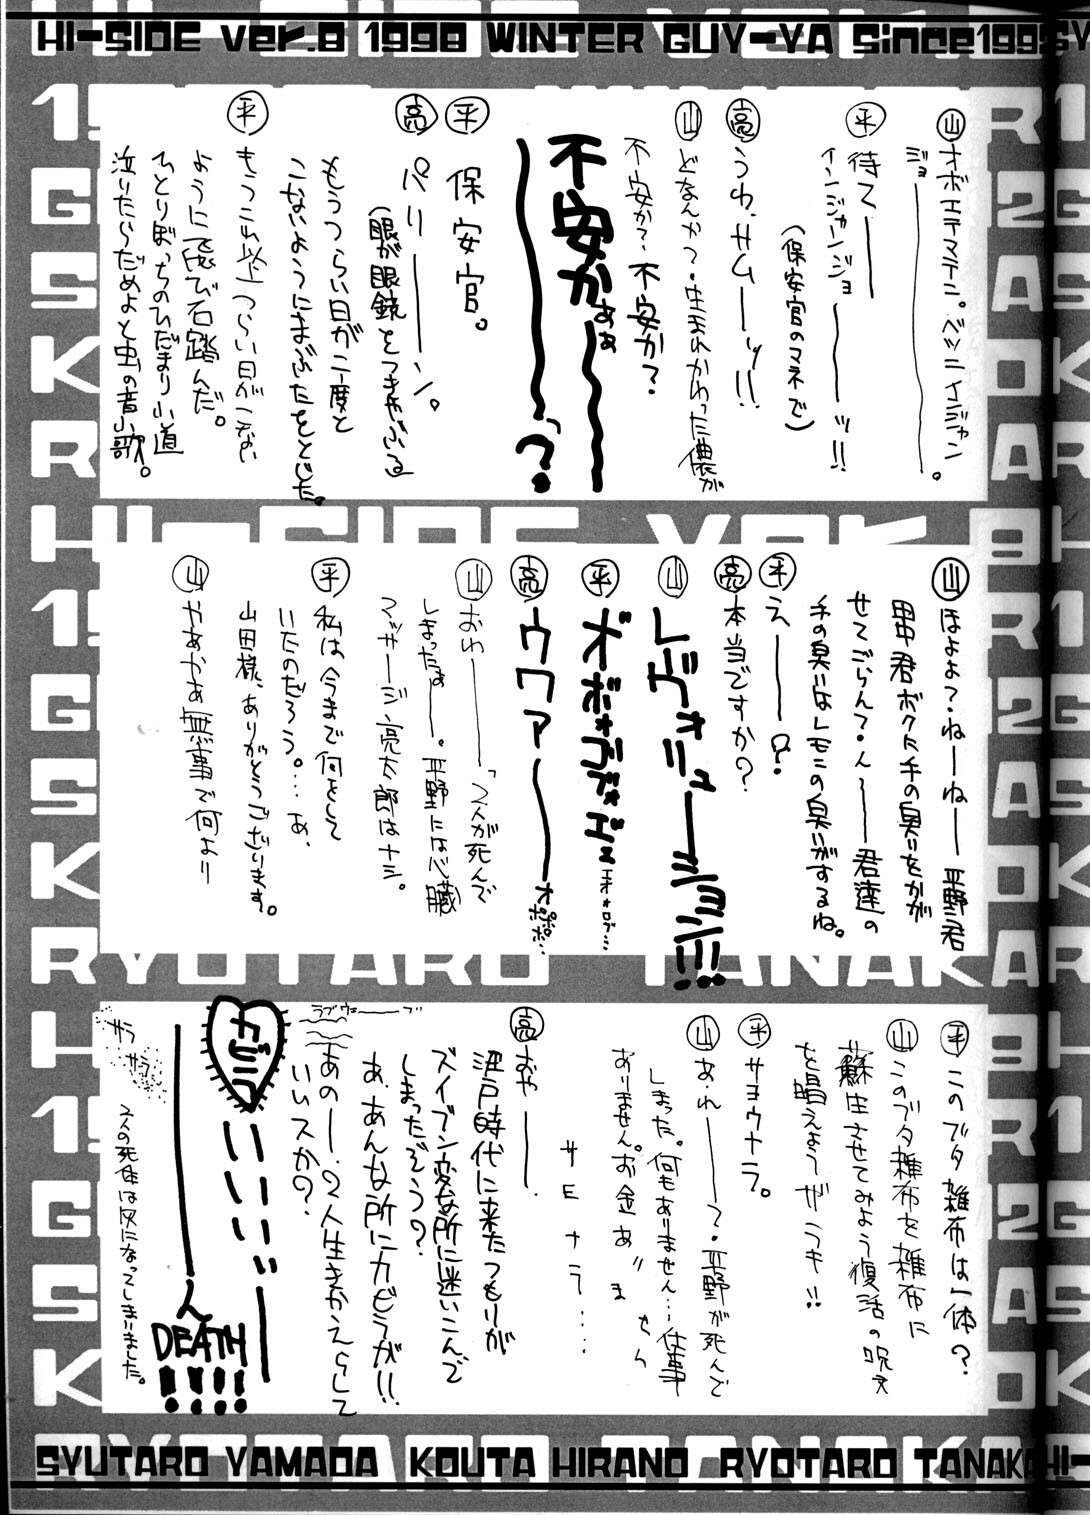 HI-SIDE ver.8 1998 WINTER GUY-YA Since1995
山 オボエテマテン。ベツニイジャン
ジョ――――。
平 待て――
インジャンジョ――――ッ!!
(保安官のマネで)
亮 うわ、サム――ッ!!
山 どなんかつ・生まれかわった儂が
不安か?・不安か?
不安かぁぁ～～
～～～っ?・
平 保安官。
亮 パリ――――ン。
(眼が眼鏡をつきやぶる
もうつらい日が二度と
こないようにまぶたをとじた。
平 もうこれ以上つらい日がこない
ように飛び石踏んだ。
ひとりぼっちのひだまり小道
泣いたらだめよと虫の音小歌。
山 ほよよ?・ねーねー 平野君
田中君ボクに手の臭いをかが
せてごらん?・ん～――君達の
手の臭いはレモンの臭いがするね。
平 え――?
亮 本当ですか?
山 レヴォリューション!!!
平 ボボォゴブォゲェ
亮 ウワァ――― オポポポ…
山 おわ―――「2人が死んで
しまったぁ――。平野には心臓
マッサージ、亮太郎はナシ。
平 私は今まで何をして
いたのだろう。…あ、
山田様、ありがとうございります。
山 やあやあ無事で何より
平 このブタ雑布は一体?
山 このブタ雑布を雑布に
蘇生させてみよう復活の呪文
を唱えよう ザラキ!!
平 サヨウナラ。
山 あれ――?・平野が死んで
しまった。何もありません…仕事
ありません。お金ありません
サヨナラ…
亮 おや――.
江戸時代に来たつもりが
ズイブン変な所に迷いこんで
しまったぞう?
あ、あんな所にカビうが!!
あの――.2人生きかえらして
いいスか?
ラブウェーーブ
カビラ
いいいいい――
―――ん
DEATH
!!!!
サラ
サラ
2人の死体は灰になってしまいました。
SYUTARO YAMADA KOUTA HIRANO RYOTARO TANAKA HI-